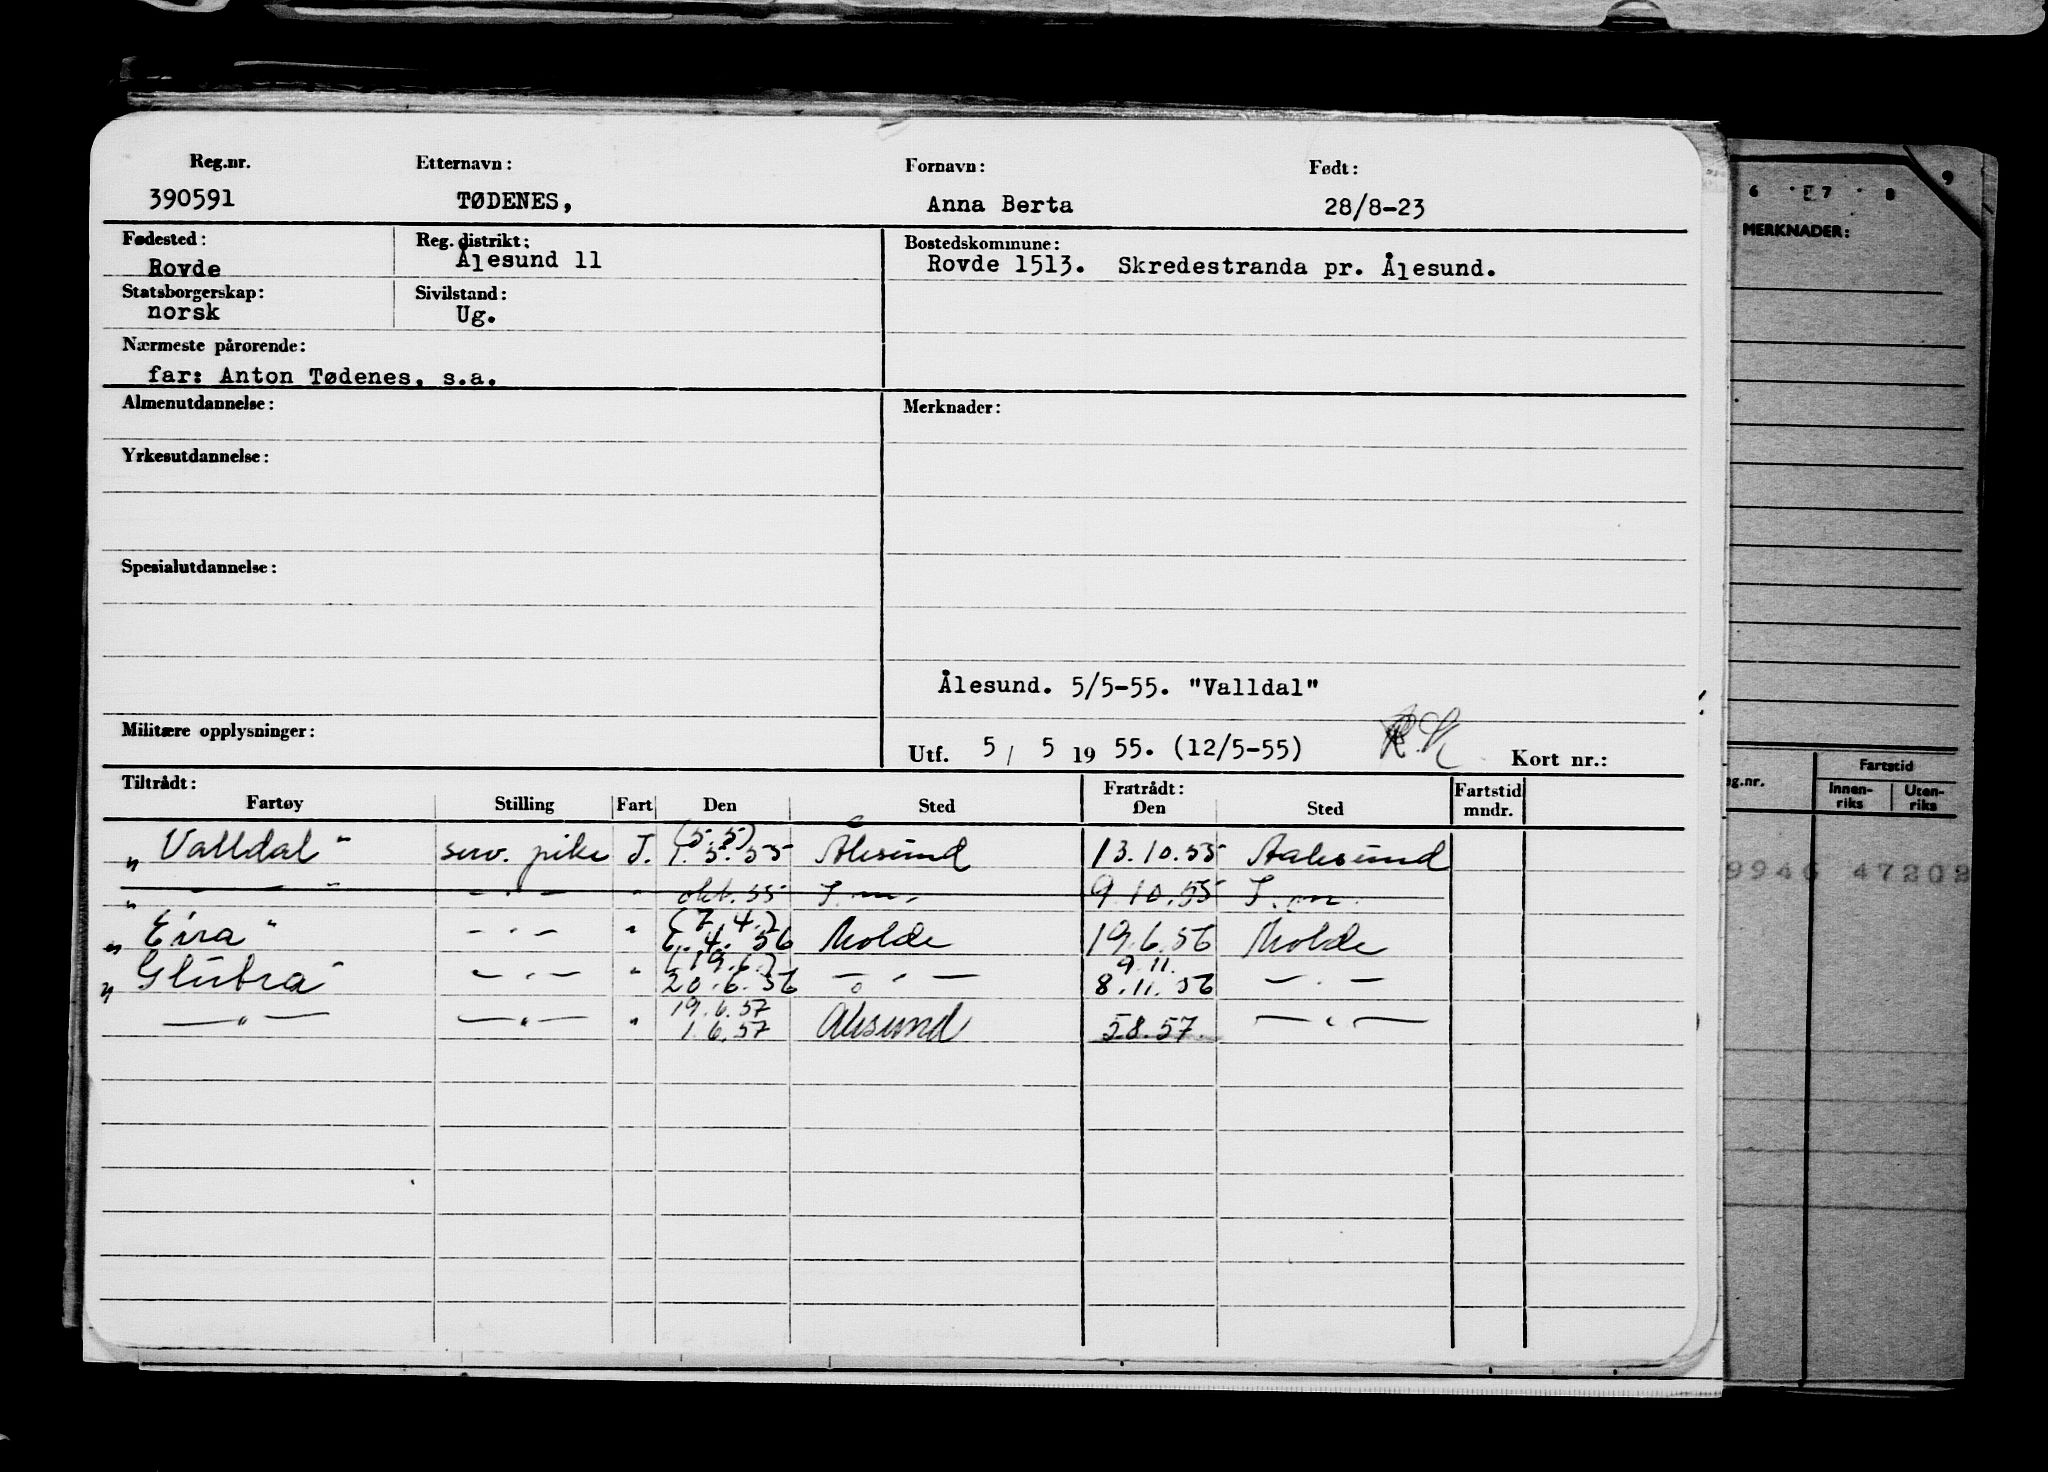 Reg.nr. Etternavn: Fornavn: Født:
390591 TØDENES, Anna Berta 28/8-23
Fødested: Reg. distrikt: Bostedskommune:
Rovde Ålesund 11 Rovde 1513. Skredestranda pr. Ålesund.
Statsborgerskap: Sivilstand:
norsk Ug.
Nærmeste pårørende:
far: Anton Tødenes, s.a.
Almenutdannelse: Merknader:
Yrkesutdannelse:
Spesialutdannelse:
Ålesund. 5/5-55. "Valldal"
Militære opplysninger:
Utf. 5/ 5 19 55. (12/5-55) Kort nr.:
Tiltrådt: Fratrådt:
Fartøy Stilling Fart Den Sted Den Sted Fartstid mndr.
(5.5)
„Valldal" serv. pike J. 1.5.55 Ålesund 13.10.55 Aalesund
„ — " — " — . — " okt. 55 9.10.55
(7.4.)
„Eira" — . — " 6.4.56 Molde 19.6.56 Molde
(19.6.) 9.11.
„Glutra" — . — " 20.6.56 — " — 8.11.56 — . —
19.6.57
— " — — " — " 1.6.57 Ålesund 5.8.57. — " —
6 7 8 9
MERKNADER:
g.nr. Fartstid
Innen-riks Uten-riks
9946 47202